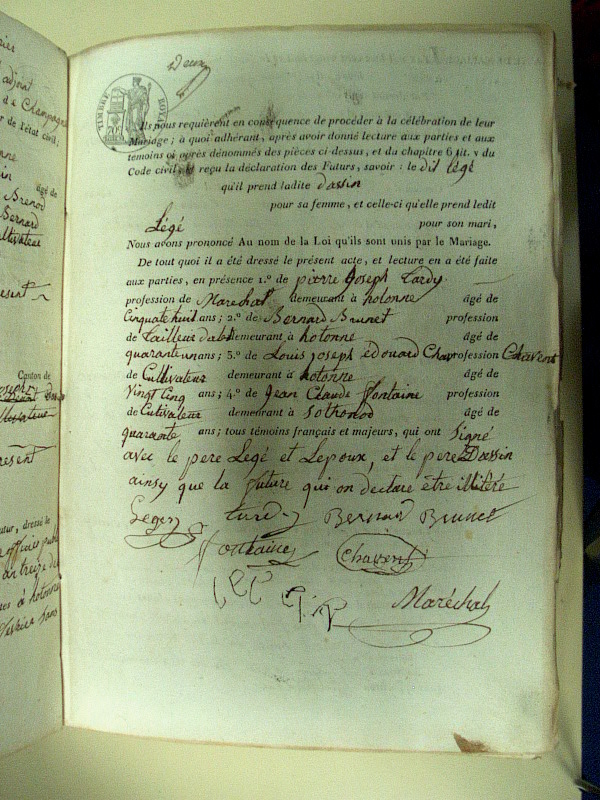 Deux
TIMBRE ROYAL
Ils nous requièrent en conséquence de procéder à la célébration de leur
Mariage; à quoi adhérant, après avoir donné lecture aux parties et aux
témoins ci après dénommés des pièces ci-dessus, et du chapitre 6 tit. v du
Code civil, et reçu la déclaration des Futurs, savoir : le dit légé
qu'il prend ladite Dassin
pour sa femme, et celle-ci qu'elle prend ledit
Légé pour son mari,
Nous avons prononcé Au nom de la Loi qu'ils sont unis par le Mariage.
De tout quoi il a été dressé le présent acte, et lecture en a été faite
aux parties, en présence 1.º de pierre Joseph tardy
profession de Marechal demeurant à hotonne âgé de
Cinquate huit ans; 2.º de Bernard Brunet profession
de tailleur dabit demeurant à hotonne âgé de
quarante un ans; 3.º de Louis joseph édouard Cha profession Chavent
de Cultivateur demeurant à hotonne âgé de
vingt Cinq ans; 4.º de Jean Claude fontaine profession
de Cutivateur demeurant à Sothonod âgé de
quarante ans; tous témoins français et majeurs, qui ont Signé
avec le pere Legé et Lepoux, et le pere Dassin
ainsy que la future qui on declare être illitéré
Bernard Brunet
fontaine Chavent
Maréchal
adjoint
de Champagne
de l'état civil;
âgé de
Brenod
Bernard
Cultivateur
Canton de